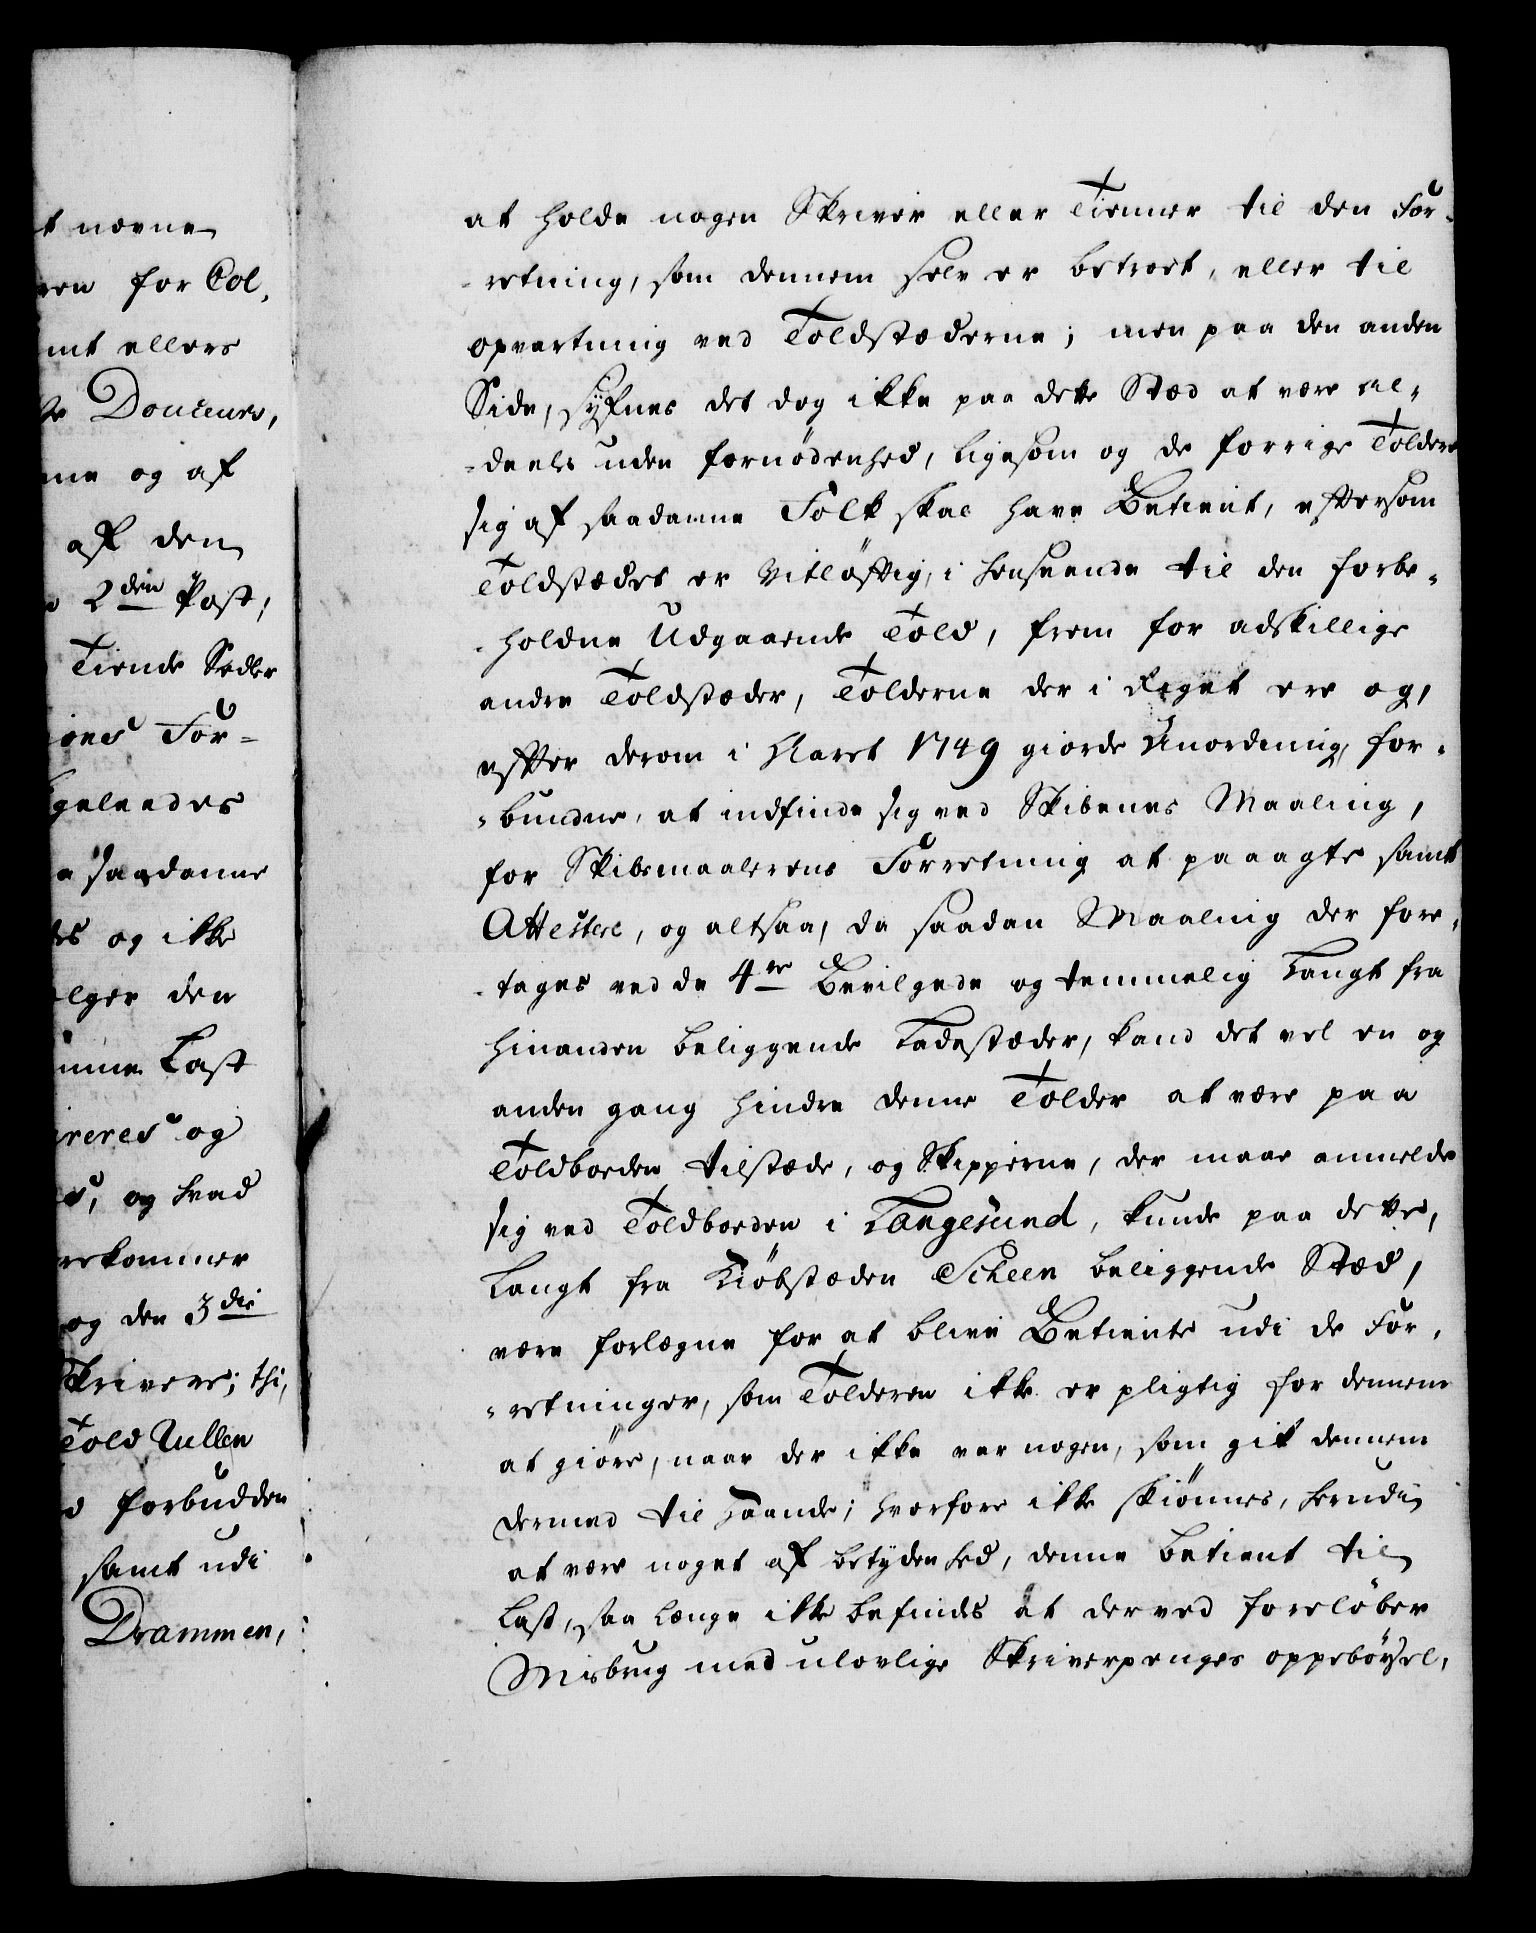 t nævne
ren for Col,
mt ellers
te Douceurs,
me og af
af den
2den Post,
Tiende Sedler
ones For=
geleedes
a saadanne
des og ikke
ølger den
nne Last
reres og
s, og hvad
rekommer
og den 3die
Skrivere; thi,
Told Rullen
d forbudden
samt udi
Drammen,
at holde nogen Skriver eller Tienner til den For-
-retning, som dennem selv er betroet, eller til
opvartning ved Toldstæderne; men paa den anden
Side, syfnes det dog ikke paa dette Stæd at være al-
-deeles uden fornödenhed, ligesom og de forrige Toldere
sig af saadanne Folk skal have Betient, eftersom
Toldstædet er Vitlöftig, i henseende til den forbe-
-holdne Udgaaende Told, frem for adskillige
andre Toldstæder, Tolderne der i Riget ere og,
efter derom i Aaret 1749 giorde Anordning, for-
-bundne, at indfinde sig ved Skibenes Maaling,
for Skibsmaalerens Forretning at paaagte samt
Attestere, og altsaa, da saadan Maaling der fore-
-tages ved de 4re Bevilgede og temmelig Langt fra
hinanden beliggende Ladestæder, kand det vel en og
anden gang hindre denne Tolder at være paa
Toldboeden tilstæde, og Skipperne, der maae anmelde
sig ved Toldboeden i Langesund, kunde paa dette,
Langt fra Kiöbstæden Scheen beliggende Stæd,
være forlegne for at blive Betiente udi de For-
-retninger, som Tolderen ikke er pligtig for dennem
at giöre, naar der ikke var nogen, som gik dennem
dermed til Haande; hvorfore ikke skiönnes, herudi
at være noget af betydenhed, denne betient til
Last, saa længe ikke befindes at derved foreløber
Misbrug med ulovlige Skriverpenges oppebörsel,